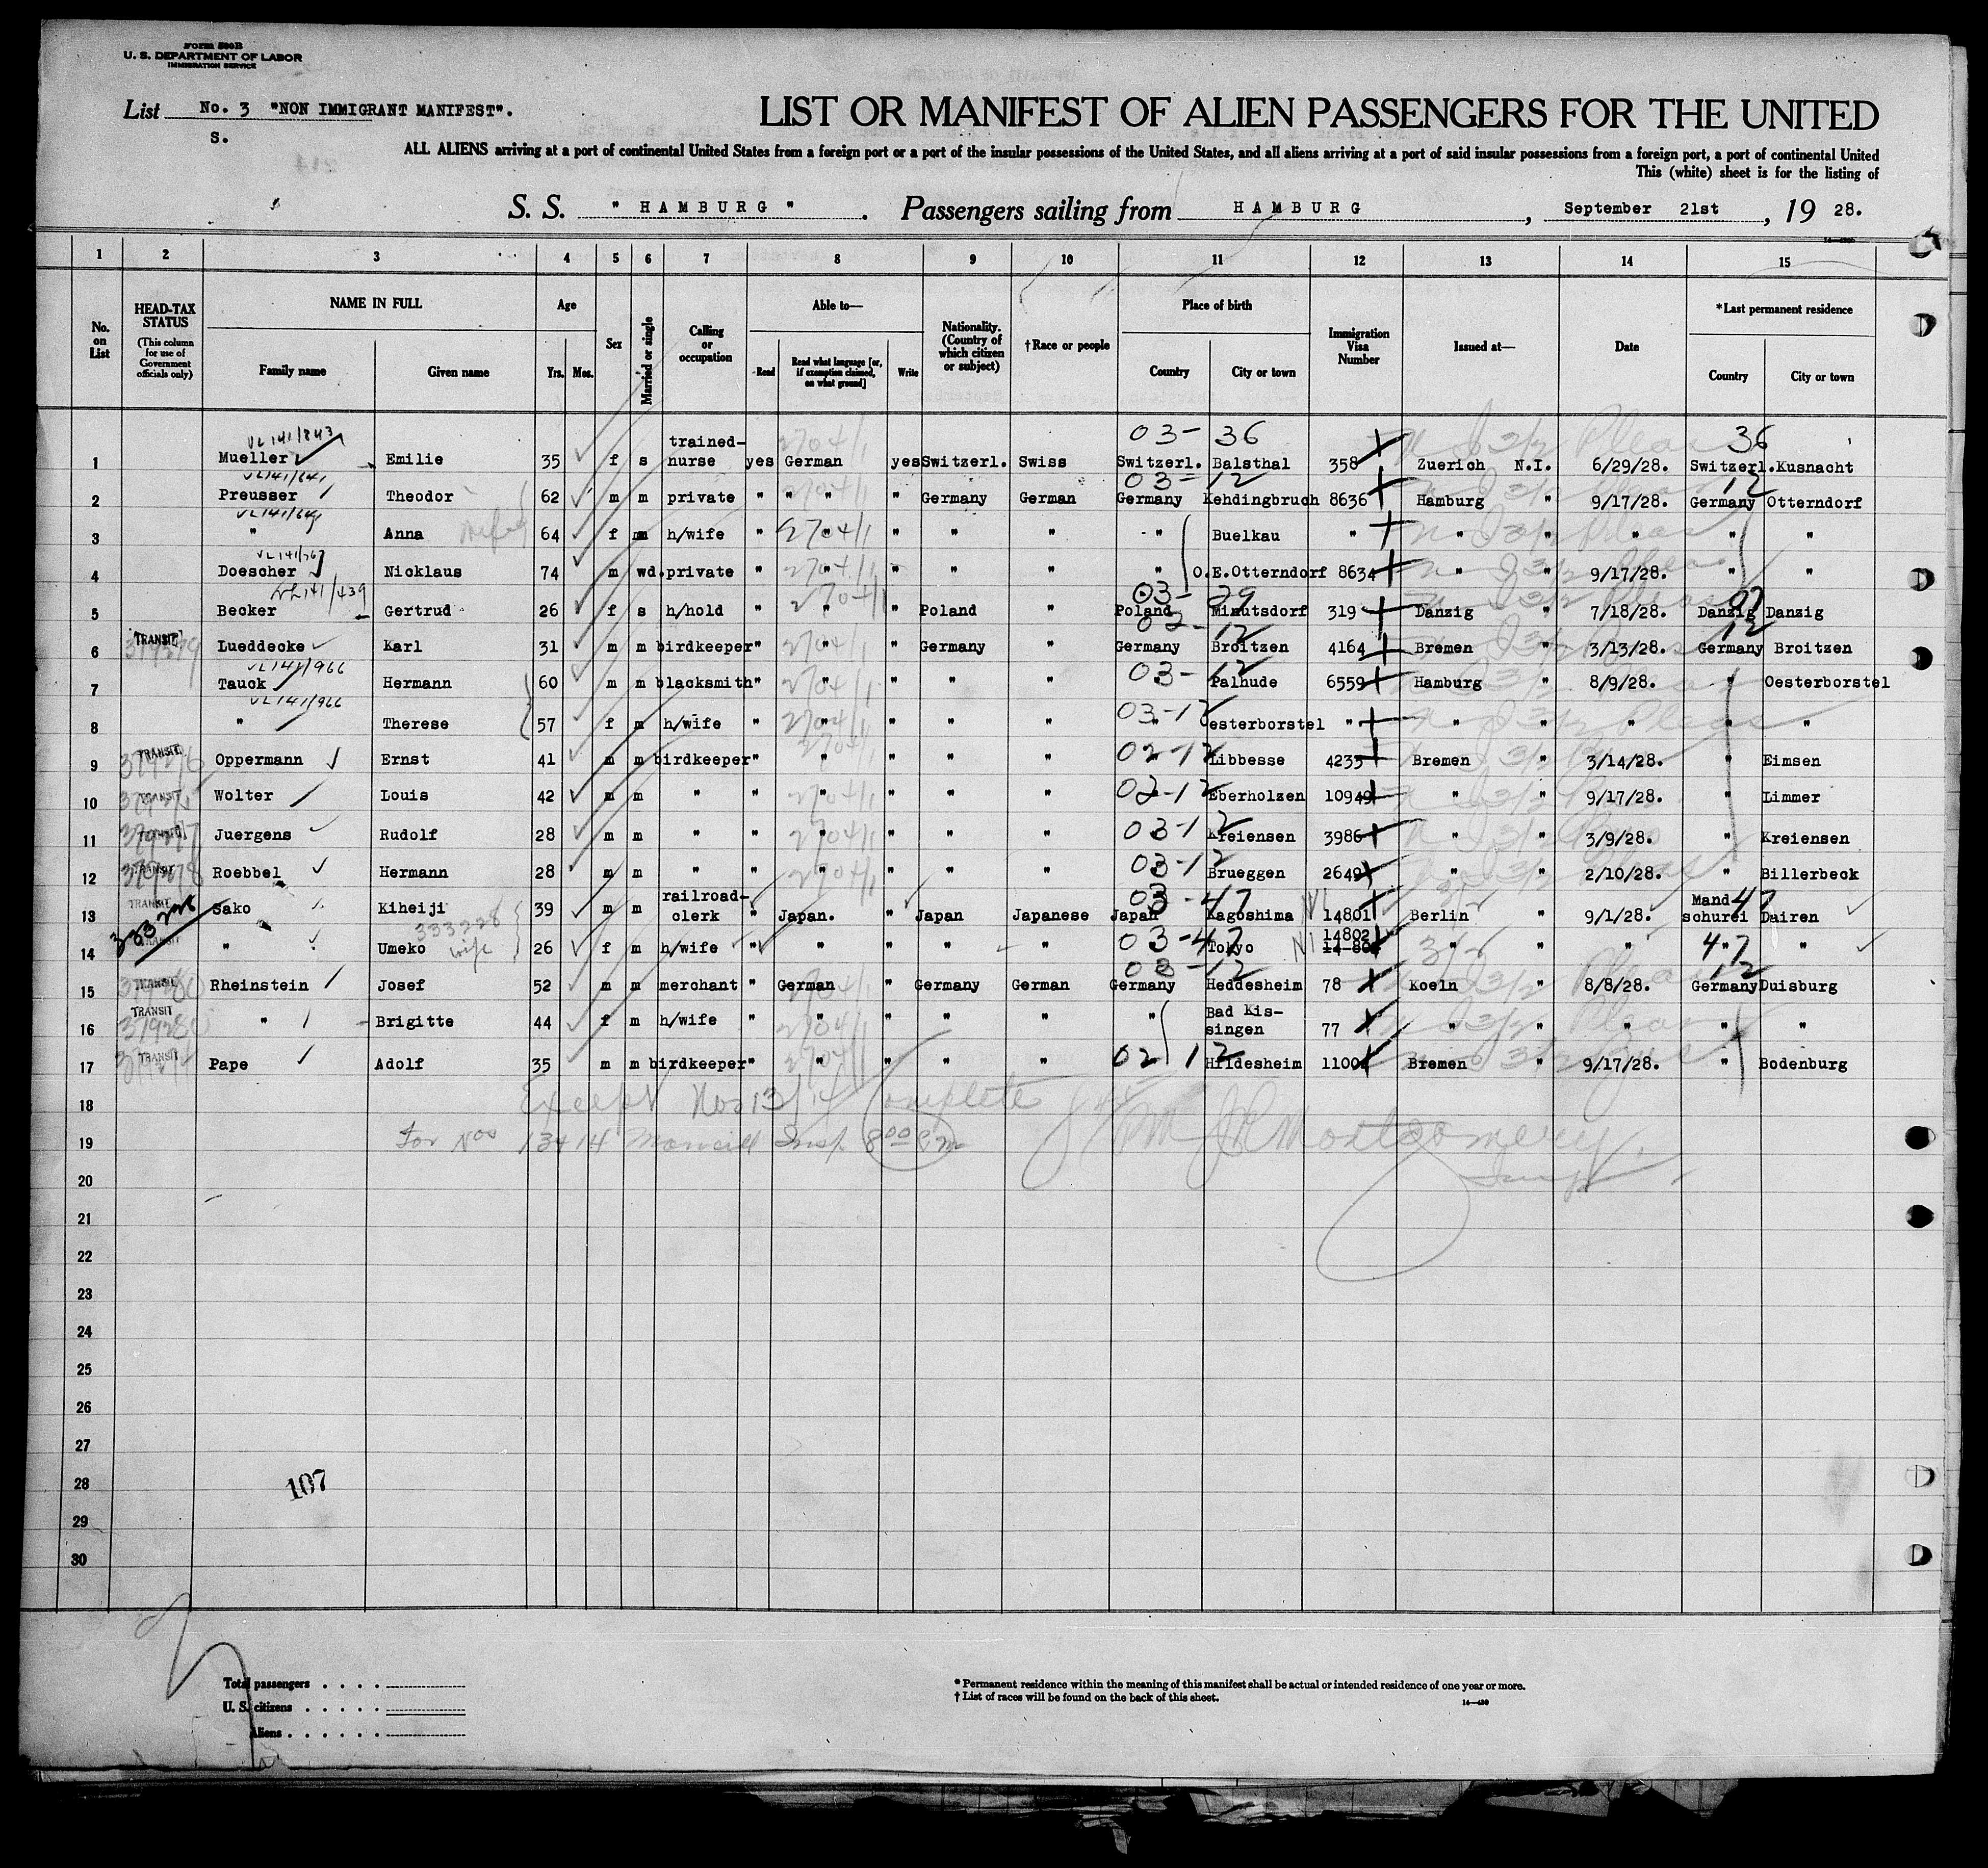 Form 500B
U. S. DEPARTMENT OF LABOR
IMMIGRATION SERVICE
List No. 3 "NON IMMIGRANT MANIFEST".
S.
LIST OR MANIFEST OF ALIEN PASSENGERS FOR THE UNITED
ALL ALIENS arriving at a port of continental United States from a foreign port or a port of the insular possessions of the United States, and all aliens arriving at a port of said insular possessions from a foreign port, a port of continental United
This (white) sheet is for the listing of
S. S. "HAMBURG". Passengers sailing from HAMBURG, September 21st, 1928.
1 2 3 4 5 6 7 8 9 10 11 12 13 14 15
No. on List
HEAD-TAX STATUS (This column for use of Government officials only)
NAME IN FULL Family name Given name
Age Yrs. Mos.
Sex
Married or single
Calling or occupation
Able to— Read Read what language [or, if exemption claimed, on what ground] Write
Nationality. (Country of which citizen or subject)
†Race or people
Place of birth Country City or town
Immigration Visa Number
Issued at—
Date
*Last permanent residence Country City or town
VL 141/843 03- 36 36
1 Mueller Emilie 35 f s trained-nurse yes German yes Switzerl. Swiss Switzerl. Balsthal 358 Zuerich N.I. 6/29/28. Switzerl. Kusnacht
VL141/641 03-12 12
2 Preusser Theodor 62 m m private " " " " Germany German Germany Kehdingbruch 8636 Hamburg " 9/17/28. Germany Otterndorf
VL141/641
3 " Anna wife 64 f m h/wife " 2704/1 " " " " " Buelkau " " " " " "
4 Doescher Nicklaus 74 m wd. private " " " " " " O.E.Otterndorf 8634 " " 9/17/28. " "
03- 29
5 Becker Gertrud 26 f s h/hold " " " Poland " Poland Minutsdorf 319 Danzig " 7/18/28. Danzig Danzig
02- 12 12
6 TRANSIT Lueddecke Karl 31 m m birdkeeper " " " Germany " Germany Broitzen 4164 Bremen " 3/13/28. Germany Broitzen
VL 141/966 03- 12
7 Tauck Hermann 60 m m blacksmith " " " " " Palhude 6559 Hamburg " 8/9/28. " Oesterborstel
VL 141/966 03-12
8 " Therese 57 f m h/wife " " " " " " Oesterborstel " " " " " "
9 TRANSIT Oppermann Ernst 41 m m birdkeeper " " " " " 02-12 Libbesse 4233 Bremen " 3/14/28. " Eimsen
10 TRANSIT Wolter Louis 42 m m " " " " " " 02-12 Eberholzen 10949 " " 9/17/28. " Limmer
11 TRANSIT Juergens Rudolf 28 m m " " " " " " 03-12 Kreiensen 3986 " " 3/9/28. " Kreiensen
12 TRANSIT Roebbel Hermann 28 m m " " " " " " 03-12 Brueggen 2649 " " 2/10/28. " Billerbeck
13 TRANSIT Sako Kiheiji 39 m m railroad-clerk " Japan. " Japan Japanese Japan 03-47 Kagoshima 14801 Berlin " 9/1/28. Mandschurei 47 Dairen
333228
14 TRANSIT " Umeko 333228 wife 26 f m h/wife " " " " " 03-47 Tokyo 14802 " " " 47 "
03-12 12
15 TRANSIT Rheinstein Josef 52 m m merchant " German " Germany German Germany Heddesheim 78 Koeln " 8/8/28. Germany Duisburg
16 TRANSIT " Brigitte 44 f m h/wife " " " " " " Bad Kissingen 77 " " " " "
17 TRANSIT Pape Adolf 35 m m birdkeeper " " " " " 02 12 Hildesheim 11001 Bremen " 9/17/28. " Bodenburg
18 Except Nos 13/14 Complete
19 For Nos 13+14 Insp. 8 00 P.m J R Montgomery,
20 Insp
21
22
23
24
25
26
27
28 107
29
30
Total passengers . . . .
U. S. citizens . . . . .
Aliens . . . . . .
* Permanent residence within the meaning of this manifest shall be actual or intended residence of one year or more.
† List of races will be found on the back of this sheet. 14—430